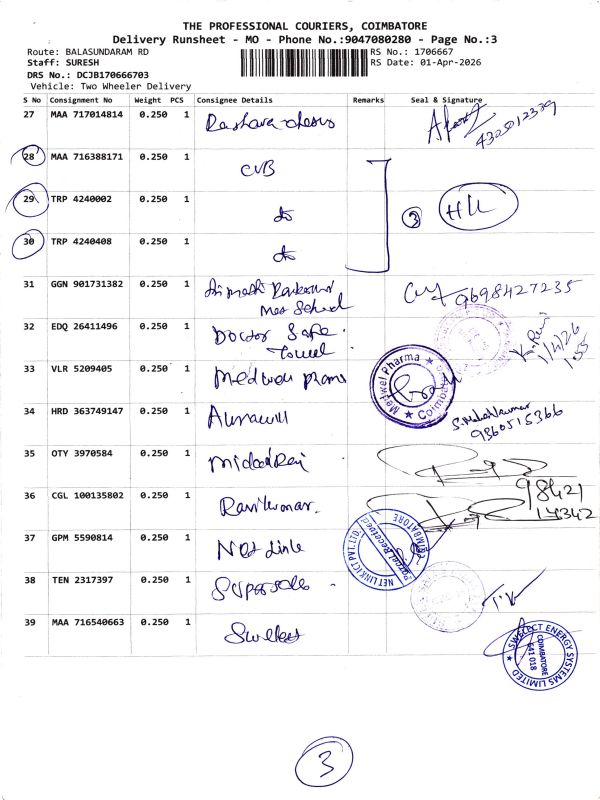 THE PROFESSIONAL COURIERS, COIMBATORE
Delivery Runsheet - MO - Phone No.:9047080280 - Page No.:3
Route: BALASUNDARAM RD RS No.: 1706667
Staff: SURESH RS Date: 01-Apr-2026
DRS No.: DCJB170666703
Vehicle: Two Wheeler Delivery
S No Consignment No Weight PCS Consignee Details Remarks Seal & Signature
27 MAA 717014814 0.250 1
4325012339
28 MAA 716388171 0.250 1 CUB
29 TRP 4240002 0.250 1 do 3 HU
30 TRP 4240408 0.250 1 do
31 GGN 901731382 0.250 1 9698427235
32 EDQ 26411496 0.250 1 Doctor Safe Towel K. Ravi 1/4/26 1.55
33 VLR 5209405 0.250 1 Medwell Pharma Medwel Pharma ★ Coimbatore
34 HRD 363749147 0.250 1 S. Mahatkumar
9360515366
35 OTY 3970584 0.250 1
36 CGL 100135802 0.250 1 Ravikumar. 98421
14342
37 GPM 5590814 0.250 1 Net Link NET LINK ICT PVT. LTD. COIMBATORE Parcel Received
38 TEN 2317397 0.250 1
39 MAA 716540663 0.250 1 Swelect SWELECT ENERGY SYSTEMS LIMITED ★ COIMBATORE 641 018
3